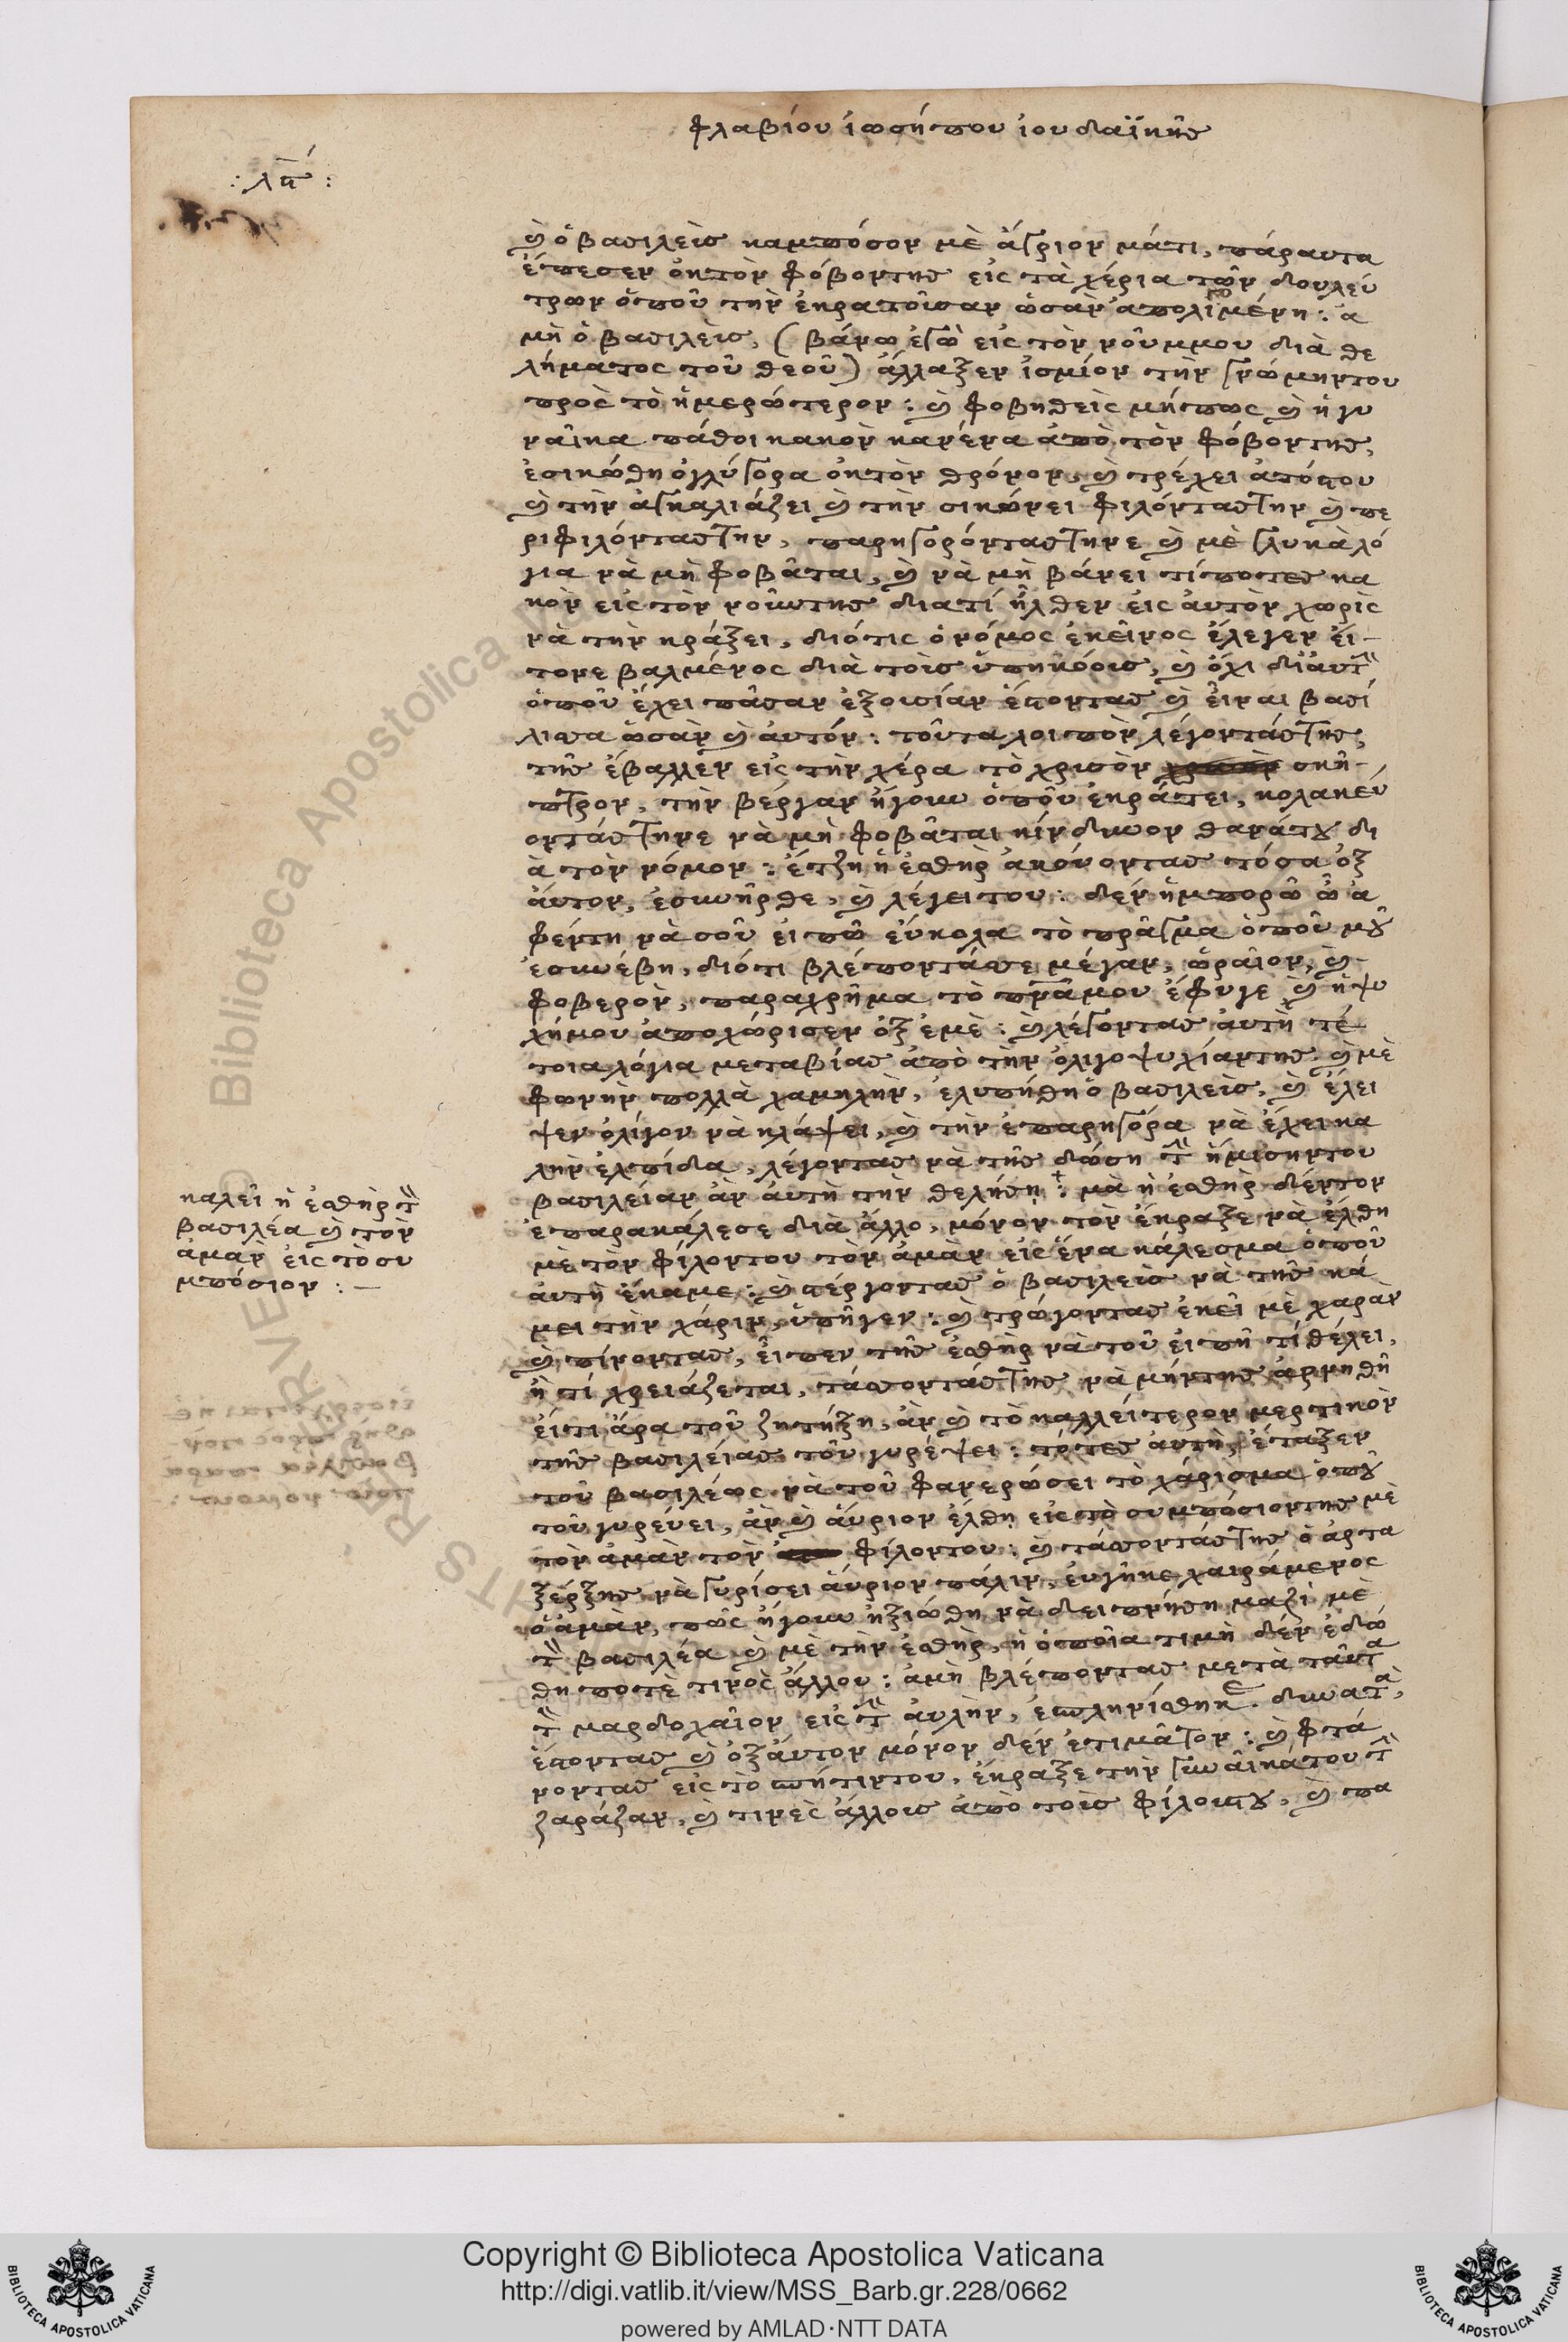 φλαβίου ἰωσήπου ἰουδαϊκῆς
: λη :
ὁ βασιλεὺς καμπόσον μὲ ἄγριον μάτι, πάραυτα
ἔπεσεν ἐκ τὸν φόβοντης εἰς τὰ χέρια τῶν δουλεύ
τρων ὁποῦ τὴν ἐκρατοῦσαν ὡσὰν : ἀ
μὴ ὁ βασιλεὺς, (βάνω ἐγὼ εἰς τὸν νοῦν μου διὰ θε
λήματος τοῦ θεοῦ) ἄλλαξεν τὴν γνώμηντου
πρὸς τὸ ἡμερώτερον : ϗ φοβηθεὶς μήπως ϗ ἡ γυ
ναῖκα πάθοι κακὸν κανένα ἀπὸ τὸν φόβοντης,
ἐσικώθη ὀγλύγορα ἐκ τὸν θρόνον, ϗ τρέχει ἀπόπου
ϗ τὴν ἀγκαλιάζει ϗ τὴν σικώνει φιλόντας την ϗ πε
ριφιλόντας την, παρηγορόντας τηνε ϗ μὲ γλυκὰ λό
για νὰ μὴ φοβᾶται, ϗ νὰ μὴ βάνει τίποτες κα
κὸν εἰς τὸν νοῦντης διατί ἦλθεν εἰς ἀυτὸν χωρὶς
νὰ τὴν κράξει, διότις ὁ νόμος ἐκεῖνος ἔλεγεν εἶ-
τονε βαλμένος διὰ τοὺς ὑπηκόους, ϗ ὄχι δι ἀυτ̀
ὁποῦ ἔχει πᾶσαν ἐξουσίαν ἔστοντας ϗ εἶναι βασί
λισσα ὡσὰν ϗ ἀυτόν : τοῦτα λοιπὸν λέγοντάς της,
τῆς ἔβαλλεν εἰς τὴν χέρα τὸ χρισὸν σκῆ-
πτρον, τὴν βέργαν ἤγουν ὁποῦ ἐκράτει, κολακεύ
οντάς τηνε νὰ μὴ φοβᾶται κίνδυνον θανάτȣ δι
ὰ τὸν νόμον : ἔτζη ἡ ἐσθὴρ ἀκούοντας τόσα ἐξ
ἀυτον, ἐσυνῆρθε, ϗ λέγει του : δὲν ἠμπορῶ ὦ ἀ
φέντη νὰ σοῦ εἰπῶ εὔκολα τὸ πρᾶγμα ὁποῦ μȣ
ἐσυνέβη, διότι βλέποντάς σε μέγαν, ὡραῖον, ϗ
φοβερὸν, παραχρῆμα τὸ πν̅ᾶμου ἔφυγε ϗ ἡ ψυ
χήμου ἀποχώρισεν ἐξ ἐμὲ : ϗ λέγοντας ἀυτὴ τέ-
τοια λόγια μεταβίας ἀπὸ τὴν ὀλιγοψυχίαντης ϗ μὲ
φωνὴν πολλὰ χαμηλὴν, ἐλυπήθη ὁ βασιλεὺς, ϗ ἔλει
ψεν ὀλίγον νὰ κλάψει, ϗ τὴν ἐπαρηγόρα νὰ ἔχει κα
λὴν ἐλπίδα, λέγοντας νὰ τῆς δώση τ̀ ἥμισηντου
βασιλείαν ἂν ἀυτὴ τὴν θελήση : μὰ ἡ ἐσθὴρ δέντον
ἐπαρακάλεσε διὰ ἄλλο, μόνον τὸν ἔκραξε νὰ ἔλθη
μὲ τὸν φίλοντου τὸν ἀμὰν εἰς ἕνα κάλεσμα ὁποῦ
ἀυτὴ ἔκαμε : ϗ στέργοντας ὁ βασιλεὺς νὰ τῆς κά
μει τὴν χάριν, ὑπῆγεν : ϗ τρώγοντας ἐκεῖ μὲ χαρὰν
ϗ πίνοντας, εἶπεν τῆς ἐσθὴρ νὰ τοῦ εἰπῆ τί θέλει,
ἢ τί χρειάζεται, τάσσοντάς της νὰ μήντης ἀρνηθῆ
εἴτι ἄρα τοῦ ζητήξη, ἂν ϗ τὸ καλλείτερον μερτικὸν
τῆς βασιλείας τοῦ γυρέψει : τότες ἀυτὴ ἔταξεν
τοῦ βασιλέως νὰ τοῦ φανερώσει τὸ χάρισμα ὁπȣ
τοῦ γυρεύει, ἂν ϗ ἄυριον ἔλθη εἰς τὸ συμπόσιοντης μὲ
τὸν ἀμὰν τὸν φίλοντου : ϗ τάσσοντάς της ὁ ἀρτα
ξέρξης νὰ γυρίσει ἄυριον πάλιν, ἐυγῆκε χαιράμενος
ὁ ἀμὰν, πῶς ἤγουν ἠξιώθη νὰ δειπνήση μαζὶ μὲ
τ̀ βασιλέα ϗ μὲ τὴν ἐσθὴρ, ἡ ὁποῖα τιμὴ δὲν ἐδώ
θη ποτὲ τινὸς ἄλλου : ἀμὴ βλέποντας μετὰ ταῦτα
τ̀ μαρδοχαῖον εἰς τ̀ ἀυλὴν,
ἔστοντας ϗ ἐξ ἄυτον μόνον δὲν ἐτιμᾶτον : ϗ φτά
νοντας εἰς τὸ σπήτιντου, ἔκραξε τὴν γυναῖκάτου τ̀
ζαράζαν, ϗ τινὲς ἄλλους ἀπὸ τοὺς φίλουςτȣ, ϗ πα
καλεῖ ἡ ἐσθὴρ τ̀
βασιλέα ϗ τὸν
ἀμαν εἰς τὸ συ
μπόσιον : —
Copyright © Biblioteca Apostolica Vaticana
http://digi.vatlib.it/view/MSS_Barb.gr.228/0662
powered by AMLAD·NTT DATA
BIBLIOTECA APOSTOLICA VATICANA
BIBLIOTECA APOSTOLICA VATICANA